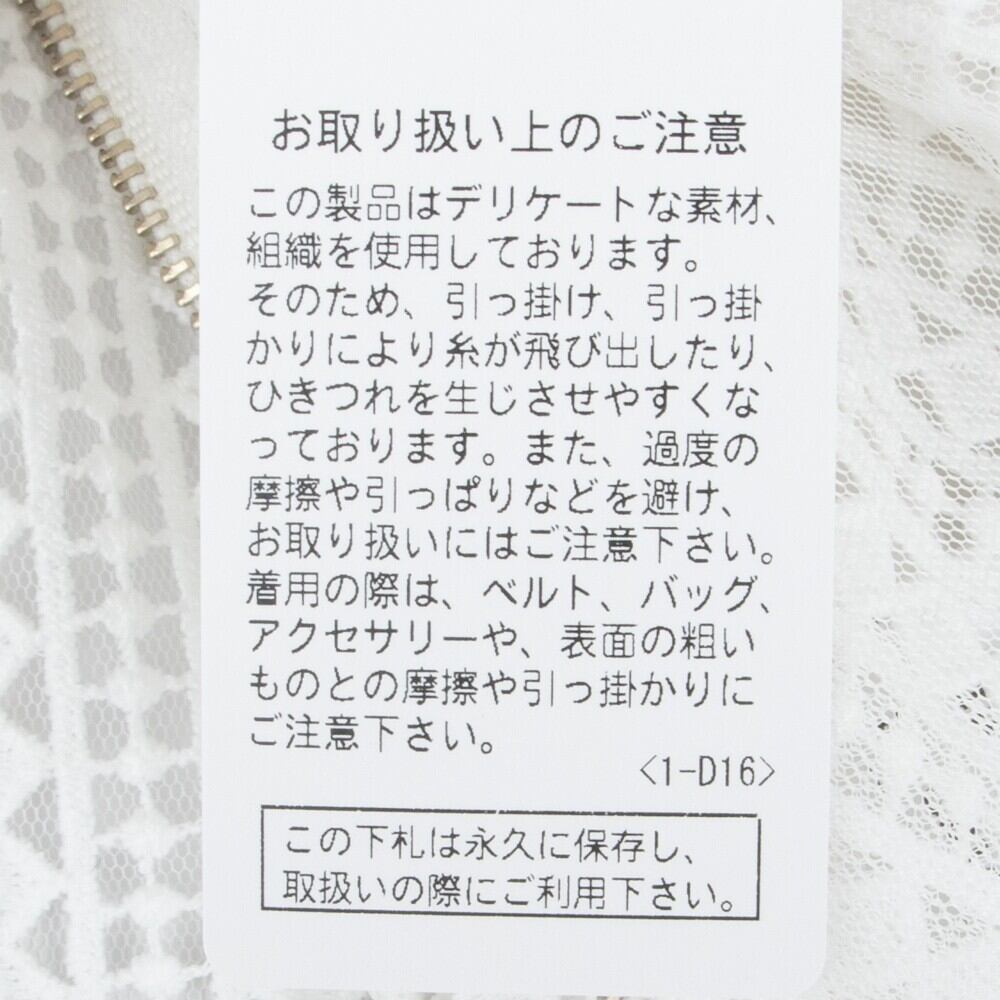 お取り扱い上のご注意
この製品はデリケートな素材、
組織を使用しております。
そのため、引っ掛け、引っ掛
かりにより糸が飛び出したり、
ひきつれを生じさせやすくな
っております。また、過度の
摩擦や引っぱりなどを避け、
お取り扱いにはご注意下さい。
着用の際は、ベルト、バッグ、
アクセサリーや、表面の粗い
ものとの摩擦や引っ掛かりに
ご注意下さい。
<1-D16>
この下札は永久に保存し、
取扱いの際にご利用下さい。